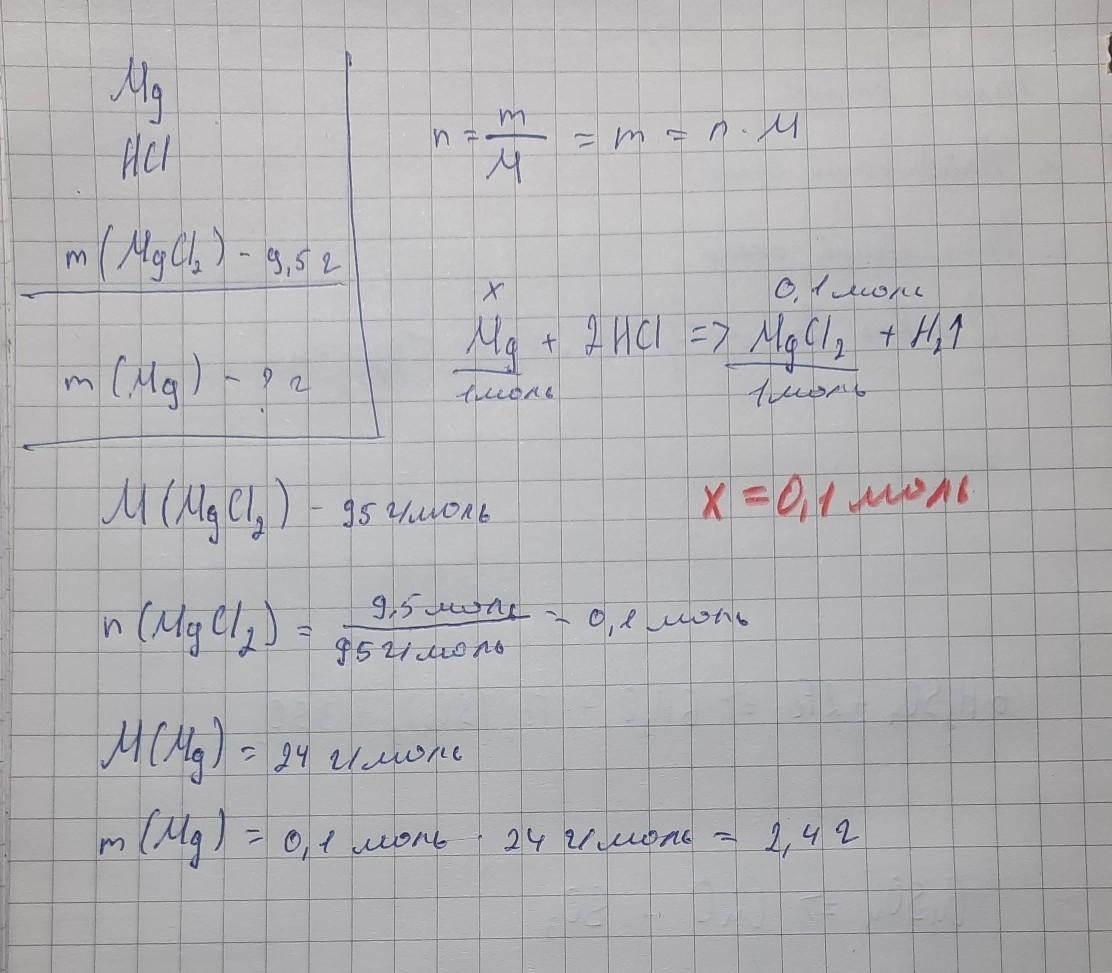 Mg
HCl
m(MgCl₂) - 9,5 г
m(Mg) - ? г
n = m/M = m = n · M
x 0,1 моль
Mg + 2HCl => MgCl₂ + H₂↑
1моль 1моль
M(MgCl₂) - 95 г/моль
x = 0,1 моль
n(MgCl₂) = 9,5 моль / 95 г/моль = 0,1 моль
M(Mg) = 24 г/моль
m(Mg) = 0,1 моль · 24 г/моль = 2,4 г